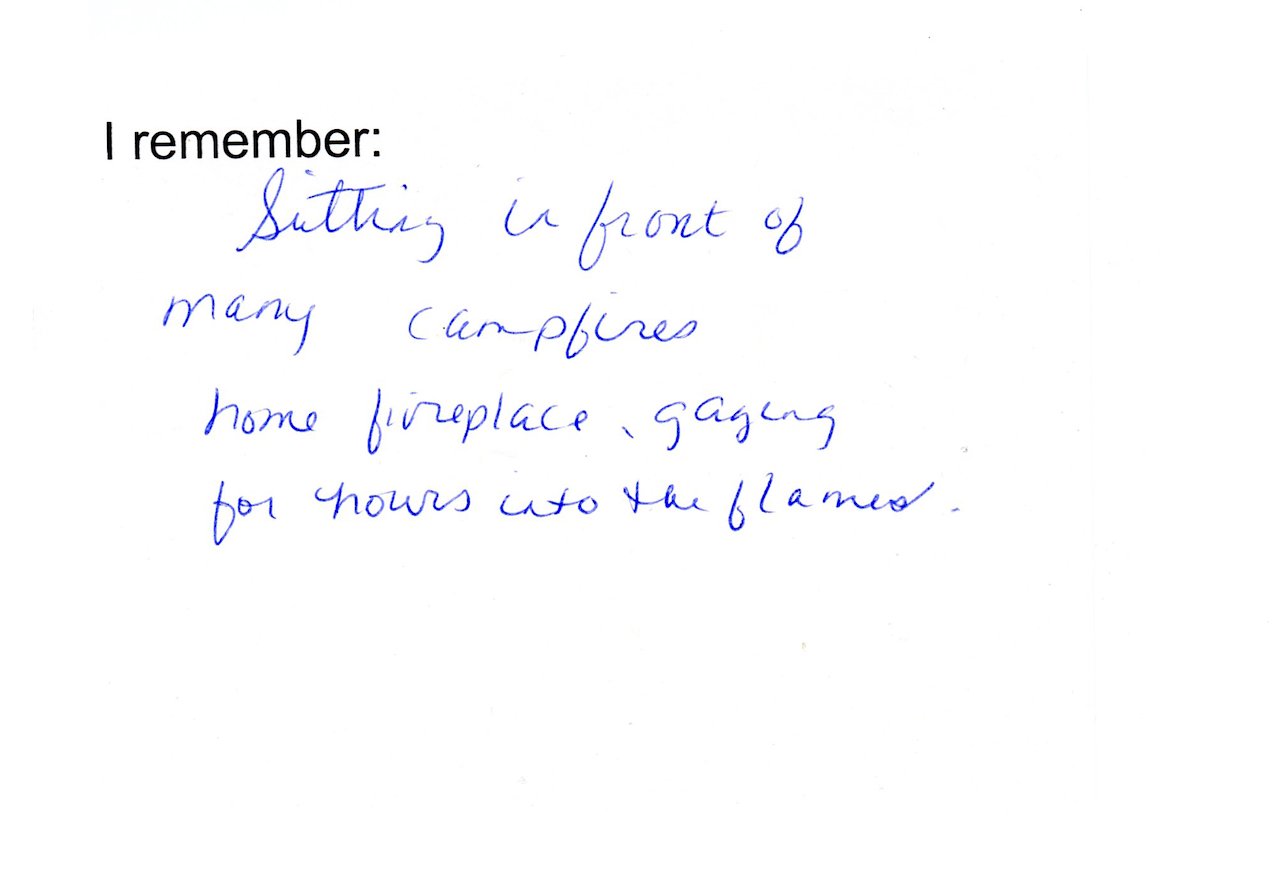 I remember:
Sitting in front of
many campfires
home fireplace, gazing
for hours into the flames.